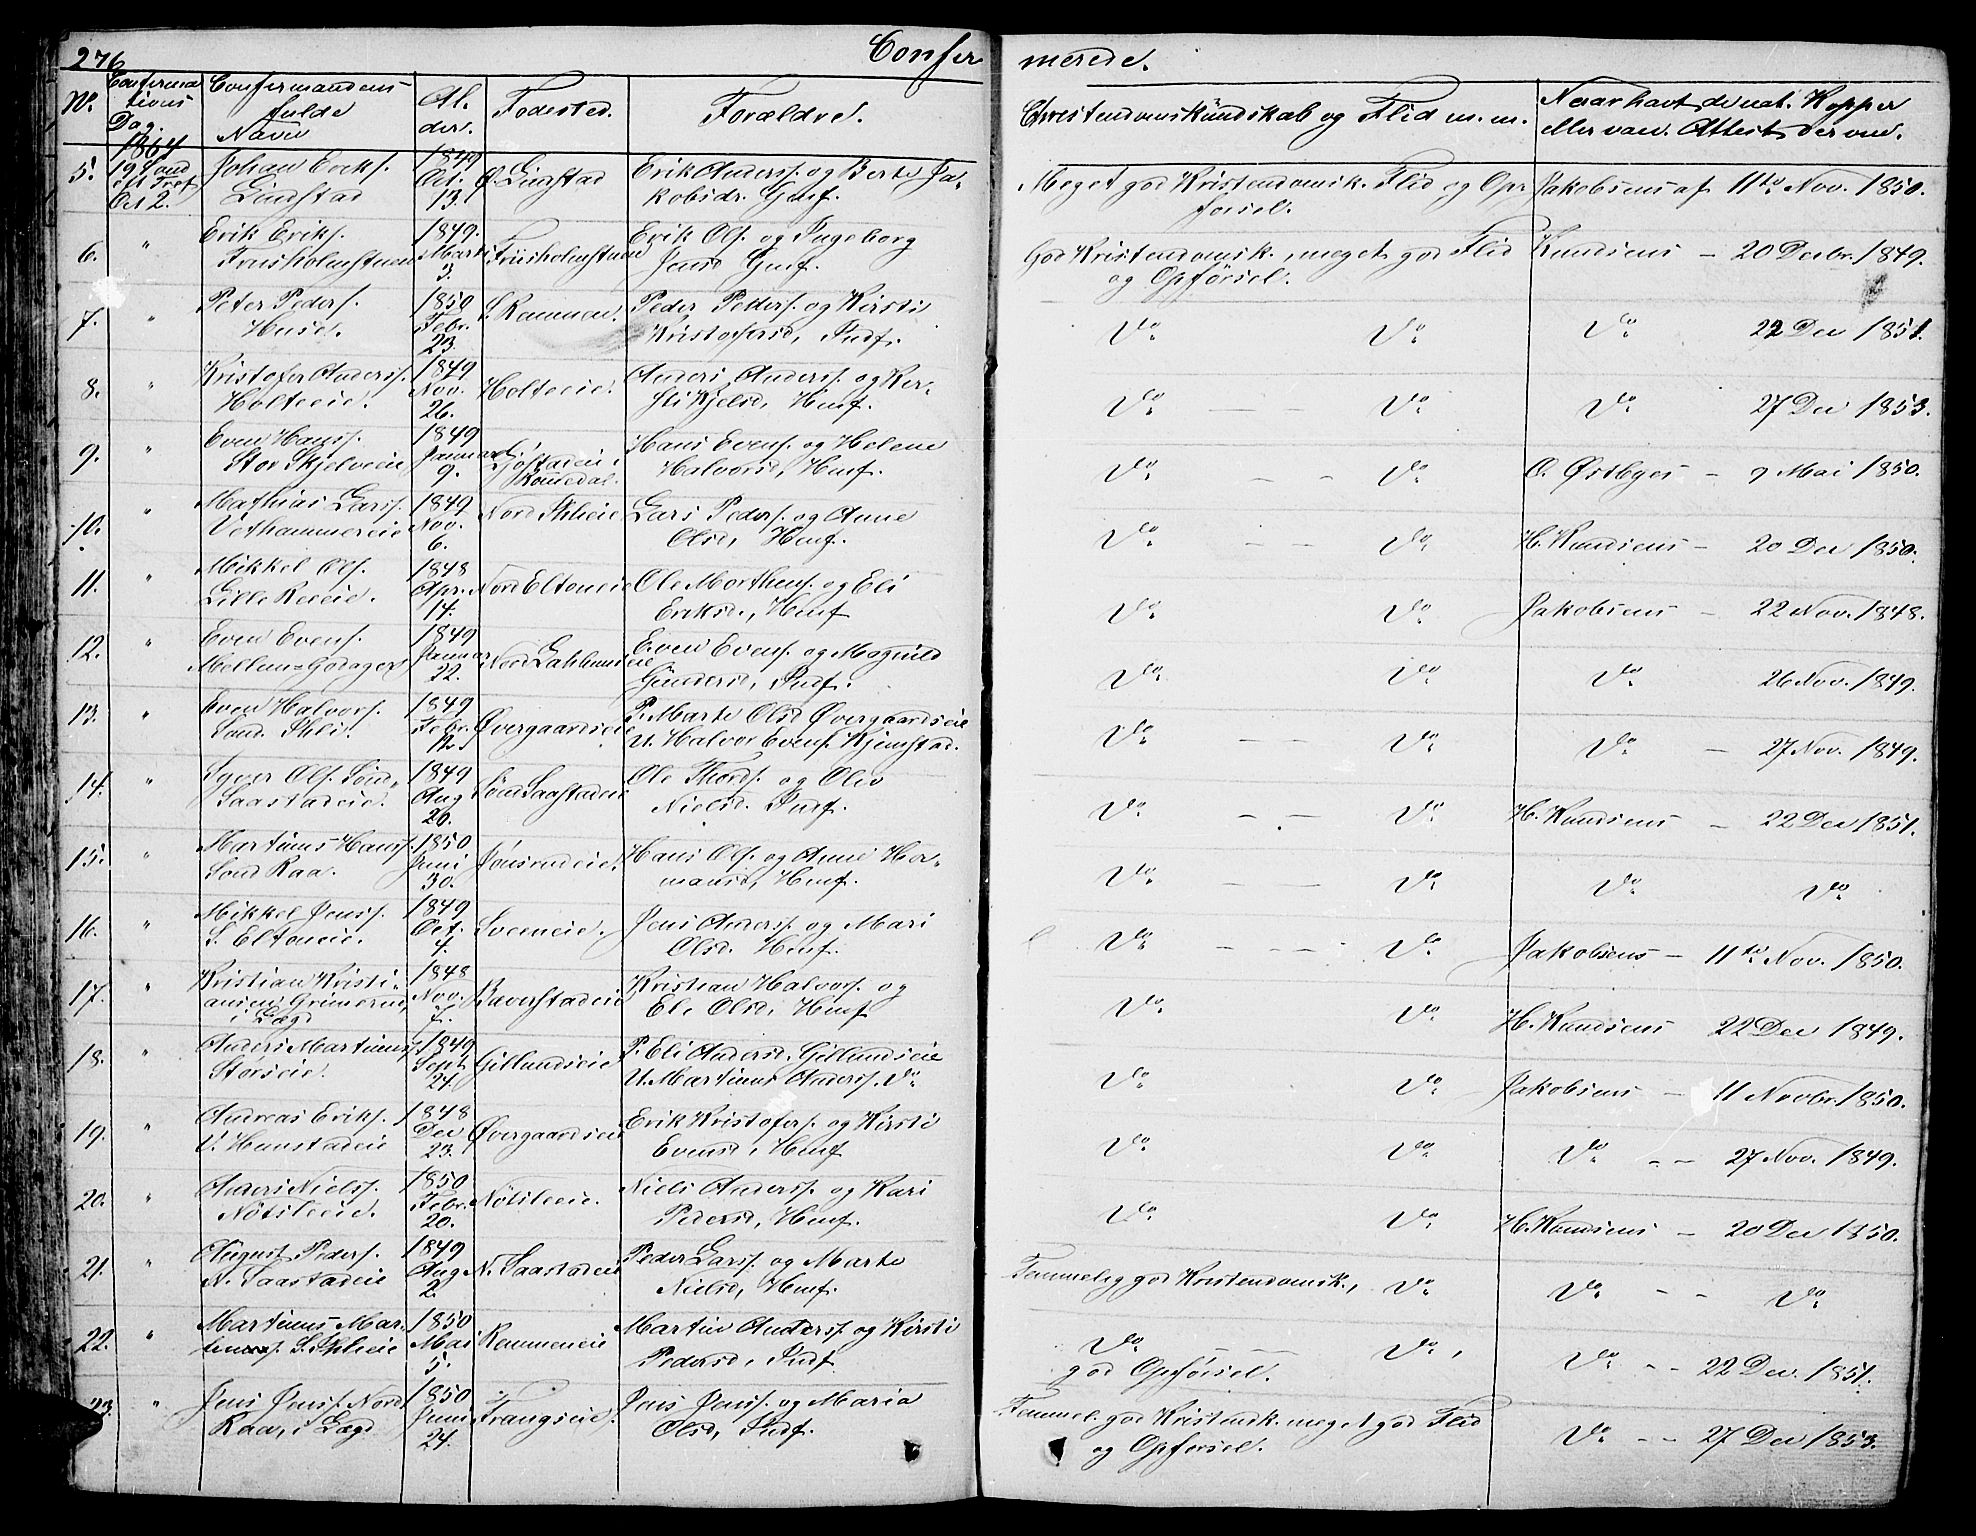 276
Confir
merede.
No.
Confirma
tions
Dag.
1864
Confirmandens
fulde
Navn
Al-
der.
Fødested.
Forældre.
Christendomskundskab og Flid m. m.
Naar havt de nat. Kopper
eller vacc. Attest derom.
5. 19 Sønd eft Tref Oct 2. Johan Eriks. Lindstad 1849 Oct. 13. Ø. Lindstad Erik Anders. og Berte Ja-
kobsdr. Gmf. Meget god Kristendomsk. Flid og Op-
førsel. Jakobsens af 11te Nov. 1850.
6. " Erik Eriks. 1849. Marts 3. Erik Ols. og Ingeborg
Jensd Gmf. God Kristendomsk., meget god Flid
og Opførsel. Knudsens – 20 Decbr. 1849.
7. " Peter Peders. Huse. 1850 Febr. 23. S. Rommen. Peder Peders. og Kirsti
Kristofersd, Indf. Do Do Do 22 Dec 1851.
8. " Kristofer Anders. Holteeie. 1849 Nov. 26. Holteeie. Anders Anders. og Ker-
sti Kjelsd, Hmf. Do – – Do Do 27 Dec 1853.
9. " Even Hans. Stor Skjelveeie 1849 Januar 9. Romedal. Hans Evens. og Helene
Halvorsd, Hmf. Do – – Do O. Østbyes – 9 Mai 1850.
10. " Mathias Lars. Vethammereie 1849 Nov. 6. Nord Ihleeie Lars Peders. og Anne
Olsd, Hmf. Do – – Do H. Knudsens – 20 Dec 1850.
11. " Mikkel Ols. Lille Reeie. 1848 Apr. 14. Nord Eltoneie Ole Morthens. og Eli
Eriksd., Hmf Do Do Jakobsens – 22 Nov. 1848.
12. " Even Evens. Mellem-Godager 1849 Januar 22. Even Evens. og Magnild
Gundersd, Indf. Do Do Do 26 Nov. 1849.
13. " Even Halvors. Sønd. Ihle. 1849 Febr. 12. Øvergaardseie P. Marte Olsd Øvergaardseie
U. Halvor Evens. Kjemstad. Do – – Do Do – 27 Nov. 1849.
14. " Syver Ols. Sønd-
Saastadeie. 1849 Aug 20. Sønd Saastadeie Ole Thords. og Oliv
Nielsd. Indf. Do – . – Do H. Knudsens – 22 Dec 1851.
15. " Martinus Hans. Sønd Raa. 1850 Juni 30. Jønsrudeie. Hans Ols. og Anne Her-
mansd, Hmf. Do – – Do Do Do
16. " Mikkel Jens. S. Eltoneie. 1849 Oct. 4. Sveeneie. Jens Anders. og Mari
Olsd. Hmf. Do – – – Do Jakobsens – 11te Nov. 1850.
17. " Kristian Kristi-
ansen Grimerud,
i Lægd 1848 Nov. 7. Ravnstadeie Kristian Halvors. og
Ele Olsd, Hmf Do Do H. Knudsens 22 Dec 1849.
18. " Anders Martinus. Størseie. 1849 Sept 24. Gillundseie P. Eli Andersd. Gillundseie
U. Martinus Anders. Do Do Do Jakobsens – 11 Novbr. 1850.
19. " Andreas Eriks. V. Hemstadeie 1848 Dec 23. Øvergaardseie Erik Kristofers. og Kirsti
Evensd, Hmf Do Do Do – – 27 Nov. 1849.
20. " Anders Niels. Nötsleeie. 1850 Febr. 20. Nötsleeie. Niels Anders. og Kari
Pedersd, Hmf. Do Do H. Knudsens – 20 Dec 1850.
21. " August Peders. N. Saastadeie 1849 Aug 2. N. Saastadeie Peder Lars. og Marte
Nielsd, Hmf. Temmelig god Kristendomsk., Do Do – – Do
22. " Martinus Mar-
tinus. S. Ihleeie 1850 Mai 5. Rommeneie Martin Anders. og Kirsti
Pedersd, Indf Do – – Do,
god Opførsel. Do – – 22 Dec. 1851.
23. " Jens Jens. Nord
Raa, i Lægd 1850 Juni 24. Frangseie. Jens Jens. og Maria
Olsd, Indf. Temmel. god Kristendk. meget god Flid
og Opførsel. Do – – 27 Dec 1853.